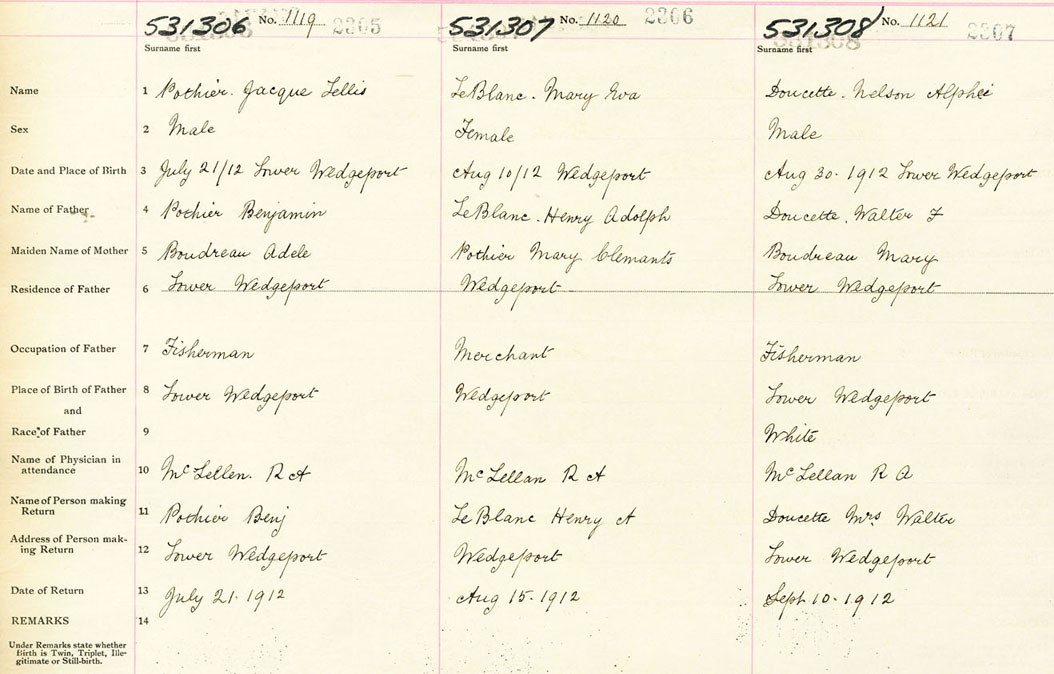 531306 No. 1119 2305 531307 No. 1120 2306 531308 No. 1121 2307
Surname first Surname first Surname first 531308
Name 1 Pothier. Jacque Lellis LeBlanc. Mary Eva Doucette. Nelson Alphei
Sex 2 Male Female Male
Date and Place of Birth 3 July 21/12 Lower Wedgeport Aug 10/12 Wedgeport Aug 30. 1912 Lower Wedgeport
Name of Father 4 Pothier Benjamin LeBlanc. Henry Adolph Doucette. Walter F
Maiden Name of Mother 5 Boudreau Adele Pothier Mary Clemants Boudreau Mary
Residence of Father 6 Lower Wedgeport Wedgeport Lower Wedgeport
Occupation of Father 7 Fisherman Merchant Fisherman
Place of Birth of Father 8 Lower Wedgeport Wedgeport Lower Wedgeport
and
Race of Father 9 White
Name of Physician in
attendance 10 McLellen. R A McLellan R A McLellan R A
Name of Person making
Return 11 Pothier Benj LeBlanc Henry A Doucette Mrs Walter
Address of Person mak-
ing Return 12 Lower Wedgeport Wedgeport Lower Wedgeport
Date of Return 13 July 21. 1912 Aug 15. 1912 Sept 10. 1912
REMARKS 14
Under Remarks state whether
Birth is Twin, Triplet, Ille-
gitimate or Still-birth.